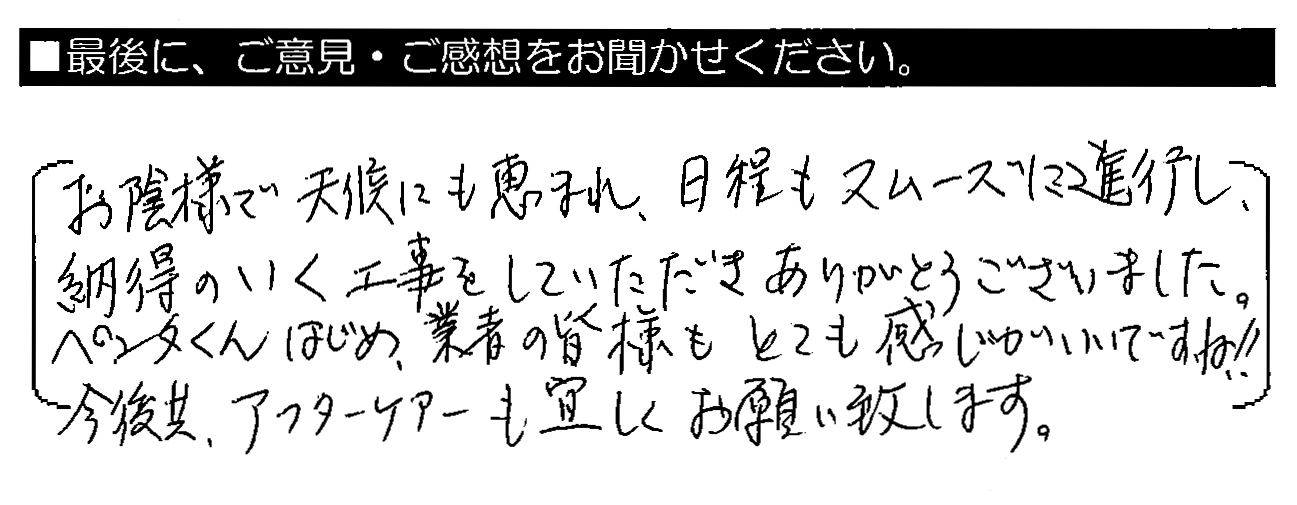 ■最後に、ご意見・ご感想をお聞かせください。
お陰様で天候にも恵まれ、日程もスムーズに進行し、
納得のいく工事をしていただきありがとうございました。
ペンタくんはじめ、業者の皆様もとても感じがいいですね!!
今後共、アフターケアーも宜しくお願い致します。